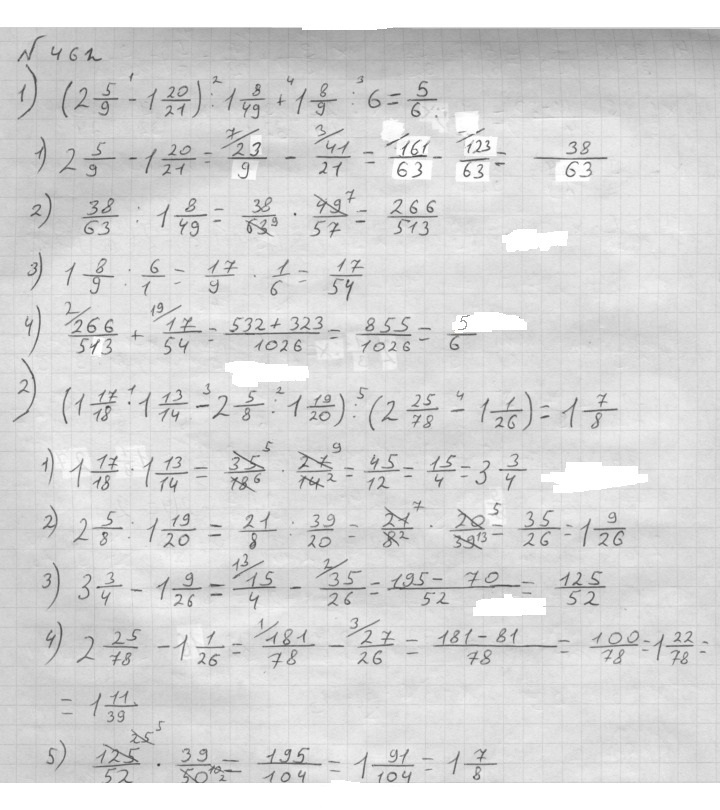 № 462
1) (2 5/9 - 1 20/21) : 1 8/49 + 1 8/9 : 6 = 5/6
1) 2 5/9 - 1 20/21 = 23/9 - 41/21 = 161/63 - 123/63 = 38/63
2) 38/63 : 1 8/49 = 38/63 · 49/57 = 266/513
3) 1 8/9 : 6/1 = 17/9 · 1/6 = 17/54
4) 266/513 + 17/54 = 532 + 323/1026 = 855/1026 = 5/6
2) (1 17/18 · 1 13/14 - 2 5/8 : 1 19/20) : (2 25/78 - 1 1/26) = 1 7/8
1) 1 17/18 · 1 13/14 = 35/18 · 27/14 = 45/12 = 15/4 = 3 3/4
2) 2 5/8 : 1 19/20 = 21/8 : 39/20 = 21/8 · 20/39 = 35/26 = 1 9/26
3) 3 3/4 - 1 9/26 = 15/4 - 35/26 = 195 - 70/52 = 125/52
4) 2 25/78 - 1 1/26 = 181/78 - 27/26 = 181 - 81/78 = 100/78 = 1 22/78 =
= 1 11/39
5) 125/52 · 39/50 = 195/104 = 1 91/104 = 1 7/8